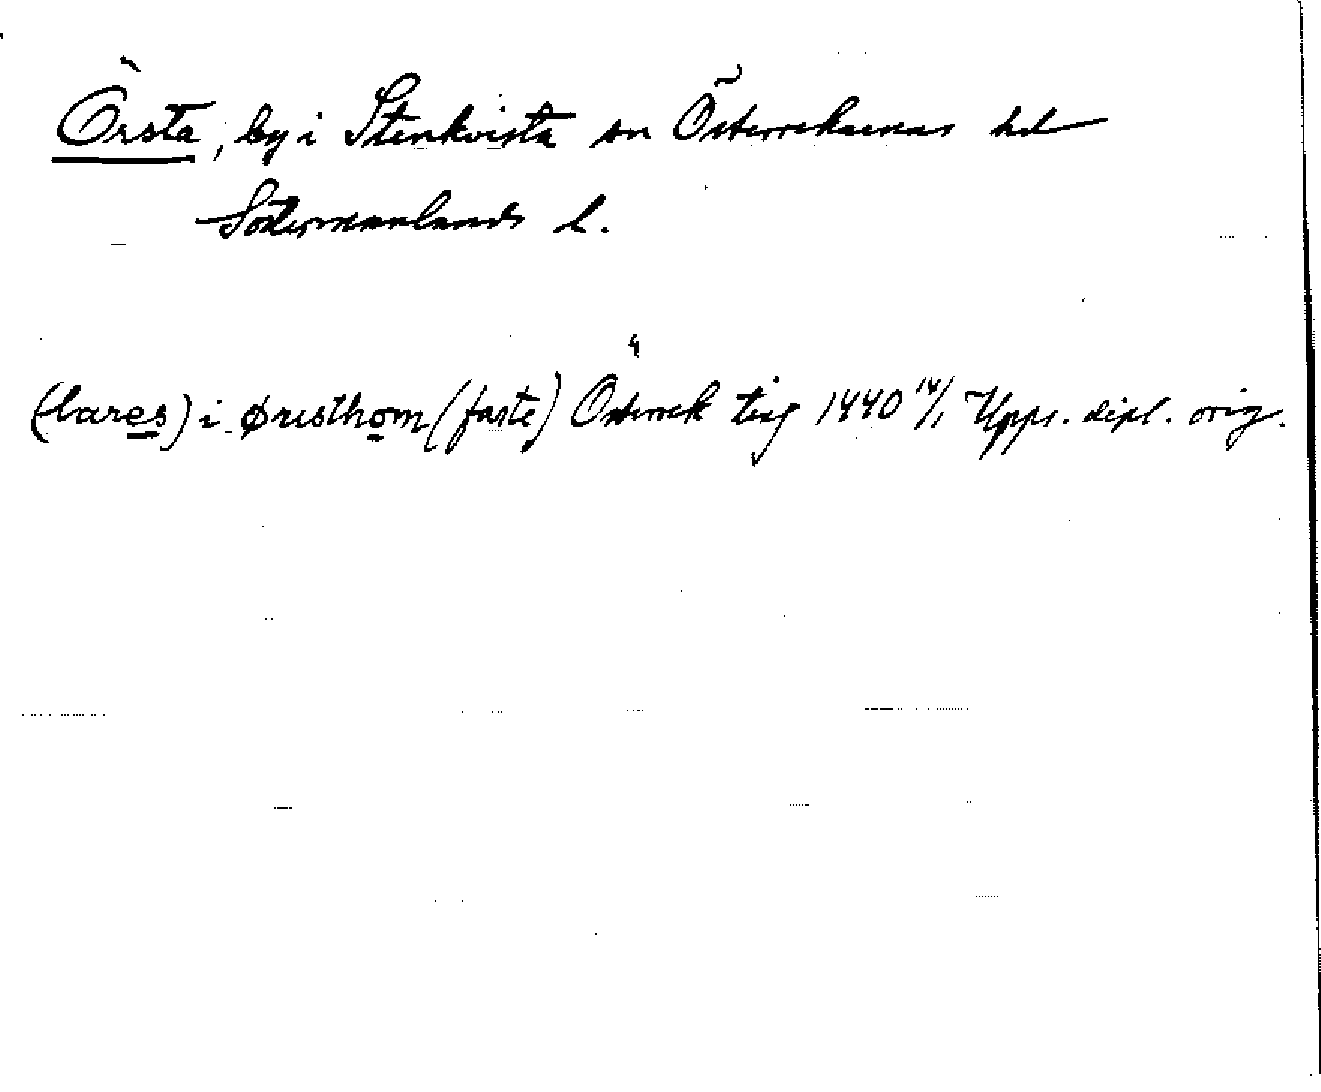 Örsta, by i Stenkvista sn Österrekarnes hd
Södermanlands l.
(lares) i ørusthom (faste) Österrek ting 1440 14/1 Upps. dipl. orig.